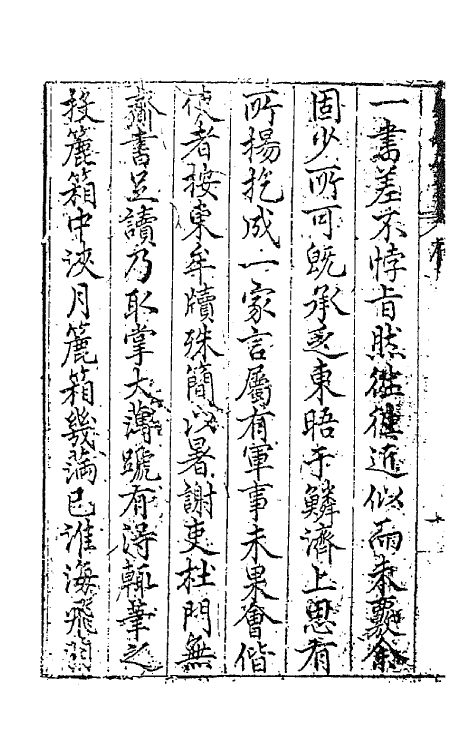 一書差不悖旨然往往近似而未覈余
固少所可既承乏東晤于鱗濟上思有
所揚扢成一家言屬有軍事未果會偕
使者按東牟牘殊簡以暑謝吏杜門無
齋書足讀乃取掌大薄蹏有得輒筆之
投簏箱中浹月簏箱幾滿已淮海飛羽